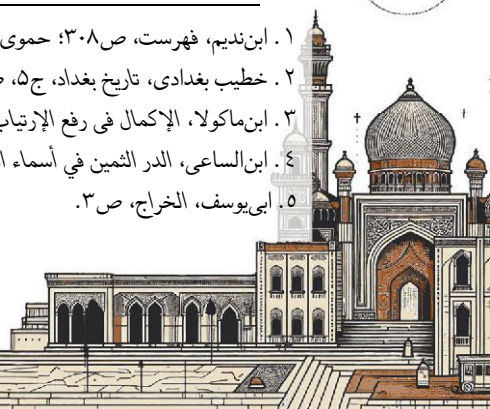 ۱. ابن‌ندیم، فهرست، ص۳۰۸؛ حموی
۲. خطیب بغدادی، تاریخ بغداد، ج۵،
۳. ابن‌ماکولا، الإکمال فی رفع الإرتیاب
٤. ابن‌الساعی، الدر الثمین في أسماء
۵. ابی‌یوسف، الخراج، ص۳.